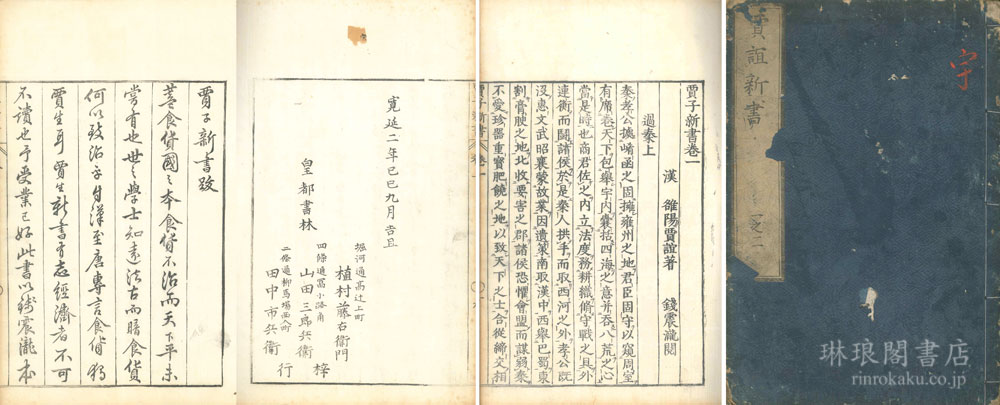 賈誼新書
宇
賈子新書卷一
漢 雒陽賈誼著 錢震瀧閱
過秦上
秦孝公據崤函之固擁雍州之地君臣固守以窺周室
有席卷天下包舉宇内囊括四海之意并吞八荒之心
當是時也商君佐之内立法度務耕織脩守戰之具外
連衡而鬬諸侯於是秦人拱手而取西河之外孝公既
没惠文武昭襄蒙故業因遺策南取漢中西舉巴蜀東
割膏腴之地北收要害之郡諸侯恐懼會盟而謀弱秦
不愛珍器重寶肥饒之地以致天下之士合從締交相
賈子新書 卷一
寛延二年己巳九月吉旦
皇都書林
堀河通高辻上町
植村藤右衛門
四條通冨小路角
山田三郎兵衛 梓
二條通柳馬場西入町
田中市兵衛 行
賈子新書跋
蓋食貨國之本食貨不治而天下平未
嘗有也世之學士知遠法古而睹食貨
何以致治乎自漢至唐專言食貨獨
賈生耳賈生新書有志經濟者不可
不讀也予受業已好此書以錢震瀧本
琳琅閣書店
rinrokaku.co.jp